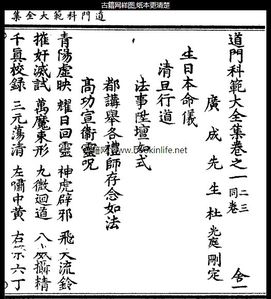 古籍网样图,纸本更清楚
道門科範大全集
道門科範大全集卷之一二三同卷
廣成先生杜光庭刪定
生日本命儀
清旦行道
法事陞壇如式
都講舉各禮師存念如法
高功宣衛靈呪
青陽虛映 耀日回靈 神虎辟邪 飛天流鈴
摧奸滅試 萬魔束形 九微迴道 八 精
千真校錄 三元蕩清 左嘯中黃 右 六丁